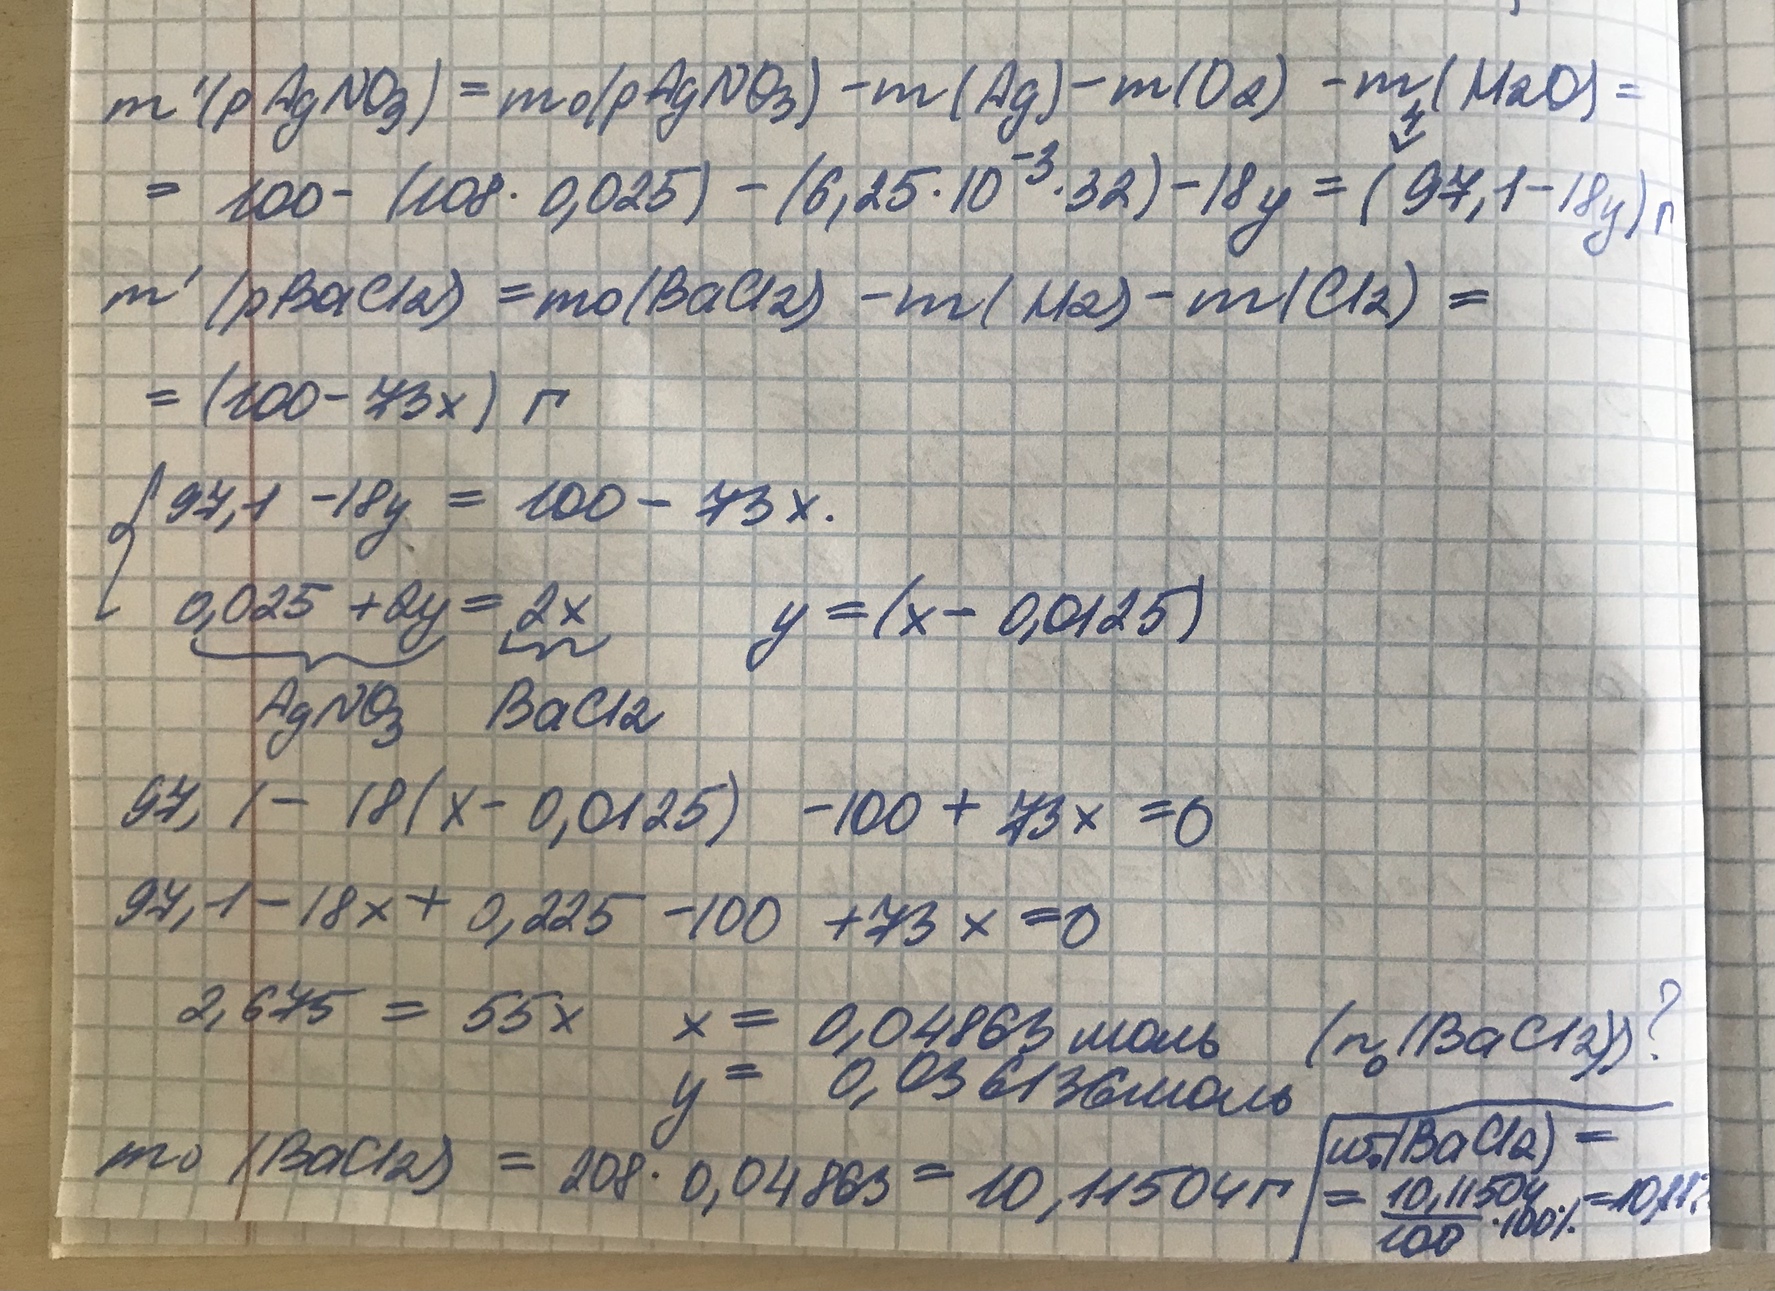 m'(р AgNO3) = m0(рAgNO3) - m(Ag) - m(O2) - m(H2O) =
= 100 - (108 · 0,025) - (6,25·10⁻³·32) - 18y = (97,1 - 18y) г
m' (рBaCl2) = m0(BaCl2) - m(H2) - m(Cl2) =
= (100 - 73x) г
97,1 - 18y = 100 - 73x.
0,025 + 2y = 2x y = (x - 0,0125)
AgNO3 BaCl2
97,1 - 18(x - 0,0125) - 100 + 73x = 0
97,1 - 18x + 0,225 - 100 + 73x = 0
2,675 = 55x x = 0,04863 моль (n0(BaCl2))?
y = 0,036136моль
m0 (BaCl2) = 208 · 0,04863 = 10,11504г
w0(BaCl2) =
= 10,11504/100 · 100% = 10,11%